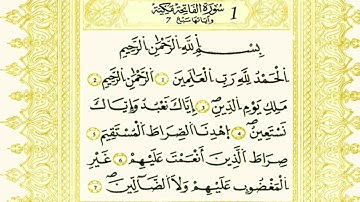 سورة الفاتحة مكية 1
وآياتها سبع 7
بِسْمِ اللَّهِ الرَّحْمَٰنِ الرَّحِيمِ
الْحَمْدُ لِلَّهِ رَبِّ الْعَالَمِينَ ٢ الرَّحْمَٰنِ الرَّحِيمِ ٣
مَلِكِ يَوْمِ الدِّينِ ٤ إِيَّاكَ نَعْبُدُ وَإِيَّاكَ
نَسْتَعِينُ ٥ اهْدِنَا الصِّرَاطَ الْمُسْتَقِيمَ ٦
صِرَاطَ الَّذِينَ أَنْعَمْتَ عَلَيْهِمْ غَيْرِ
الْمَغْضُوبِ عَلَيْهِمْ وَلَا الضَّالِّينَ ٧